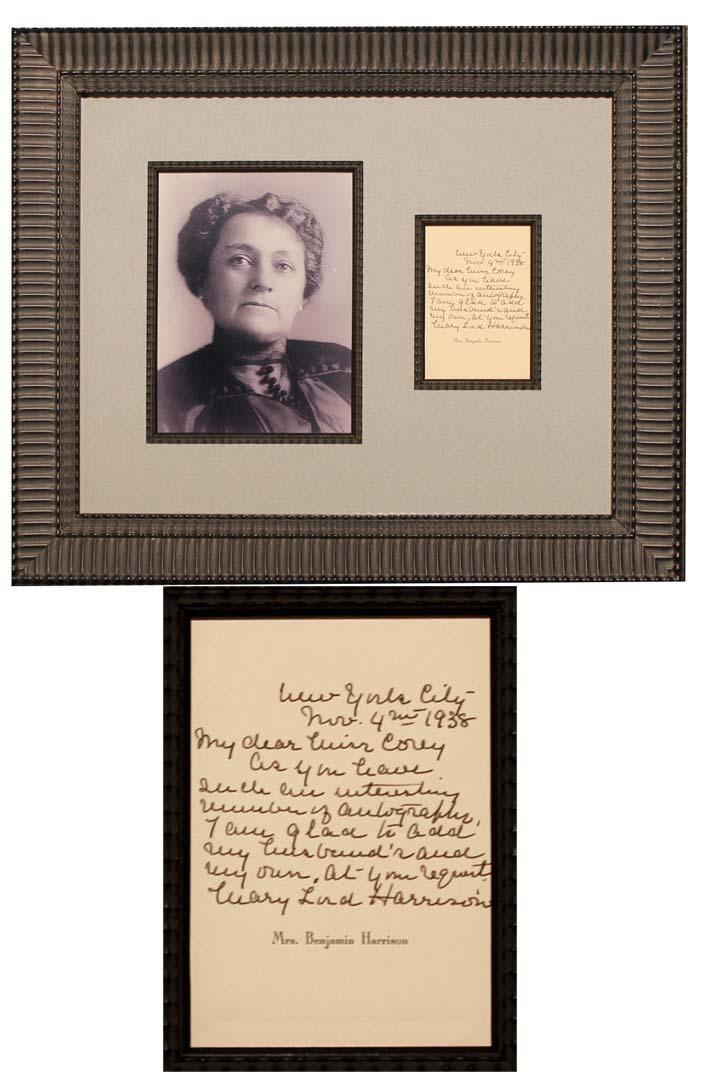 New York City
Nov. 4th 1938
My dear Miss Corey
As you have
such an interesting
number of autographs,
I am glad to add
my husband's and
my own, at your request.
Mary Lord Harrison
Mrs. Benjamin Harrison
New York City
Nov. 4th 1938
My dear Miss Corey
As you have
such an interesting
number of autographs,
I am glad to add
my husband's and
my own, at your request.
Mary Lord Harrison
Mrs. Benjamin Harrison